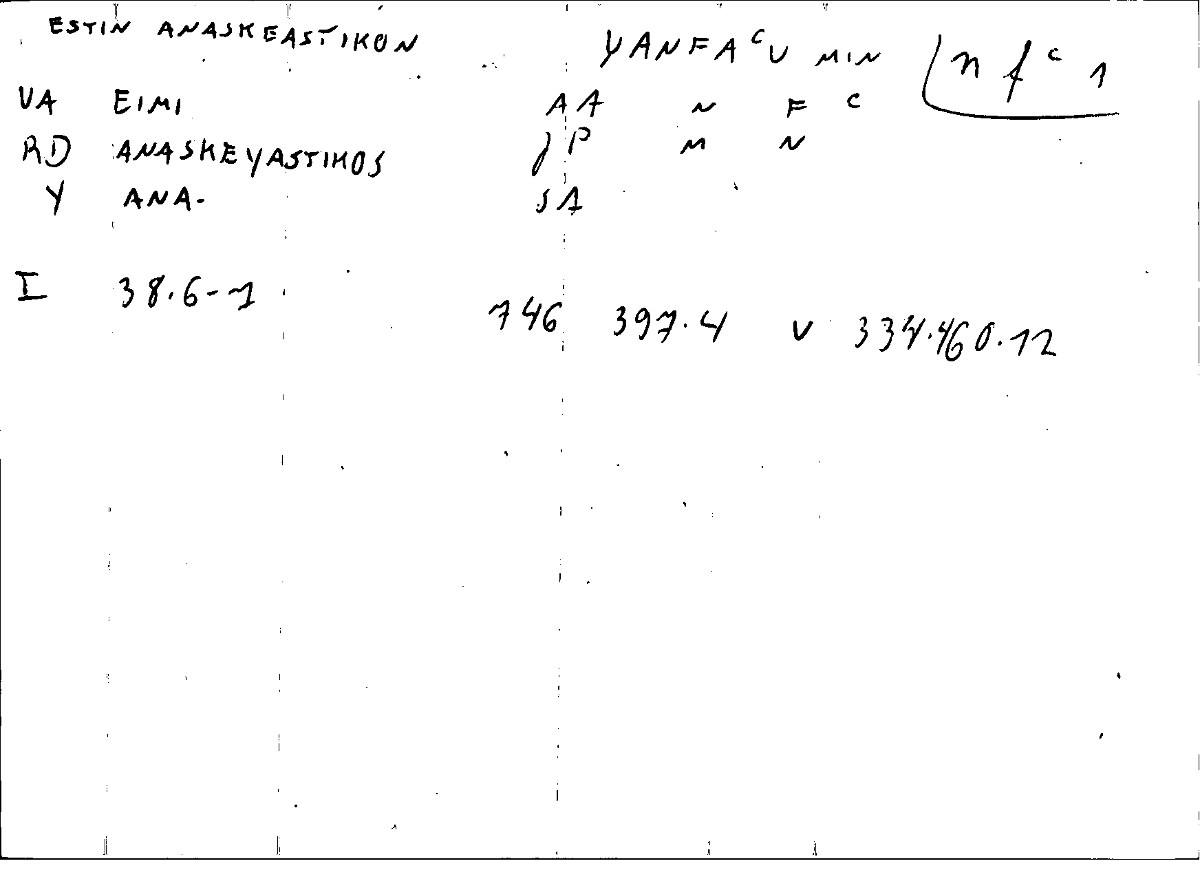 ESTIN ANASKEASTIKON YANFA^C U MIN n f^c 1
VA EIMI AA N F C
RD ANASKEYASTIKOS JP M N
Y ANA- SA
I 38.6-1 746 397.4 v 334.460.12